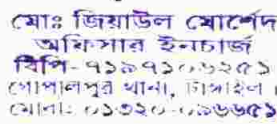 মোঃ জিয়াউল মোর্শেদ
অফিসার ইনচার্জ
বিপি-৭১৯৭১০৬২৫১
গোপালপুর থানা, টাঙ্গাইল।
মোবা: ০১৩২০-০৯৬৬৫১